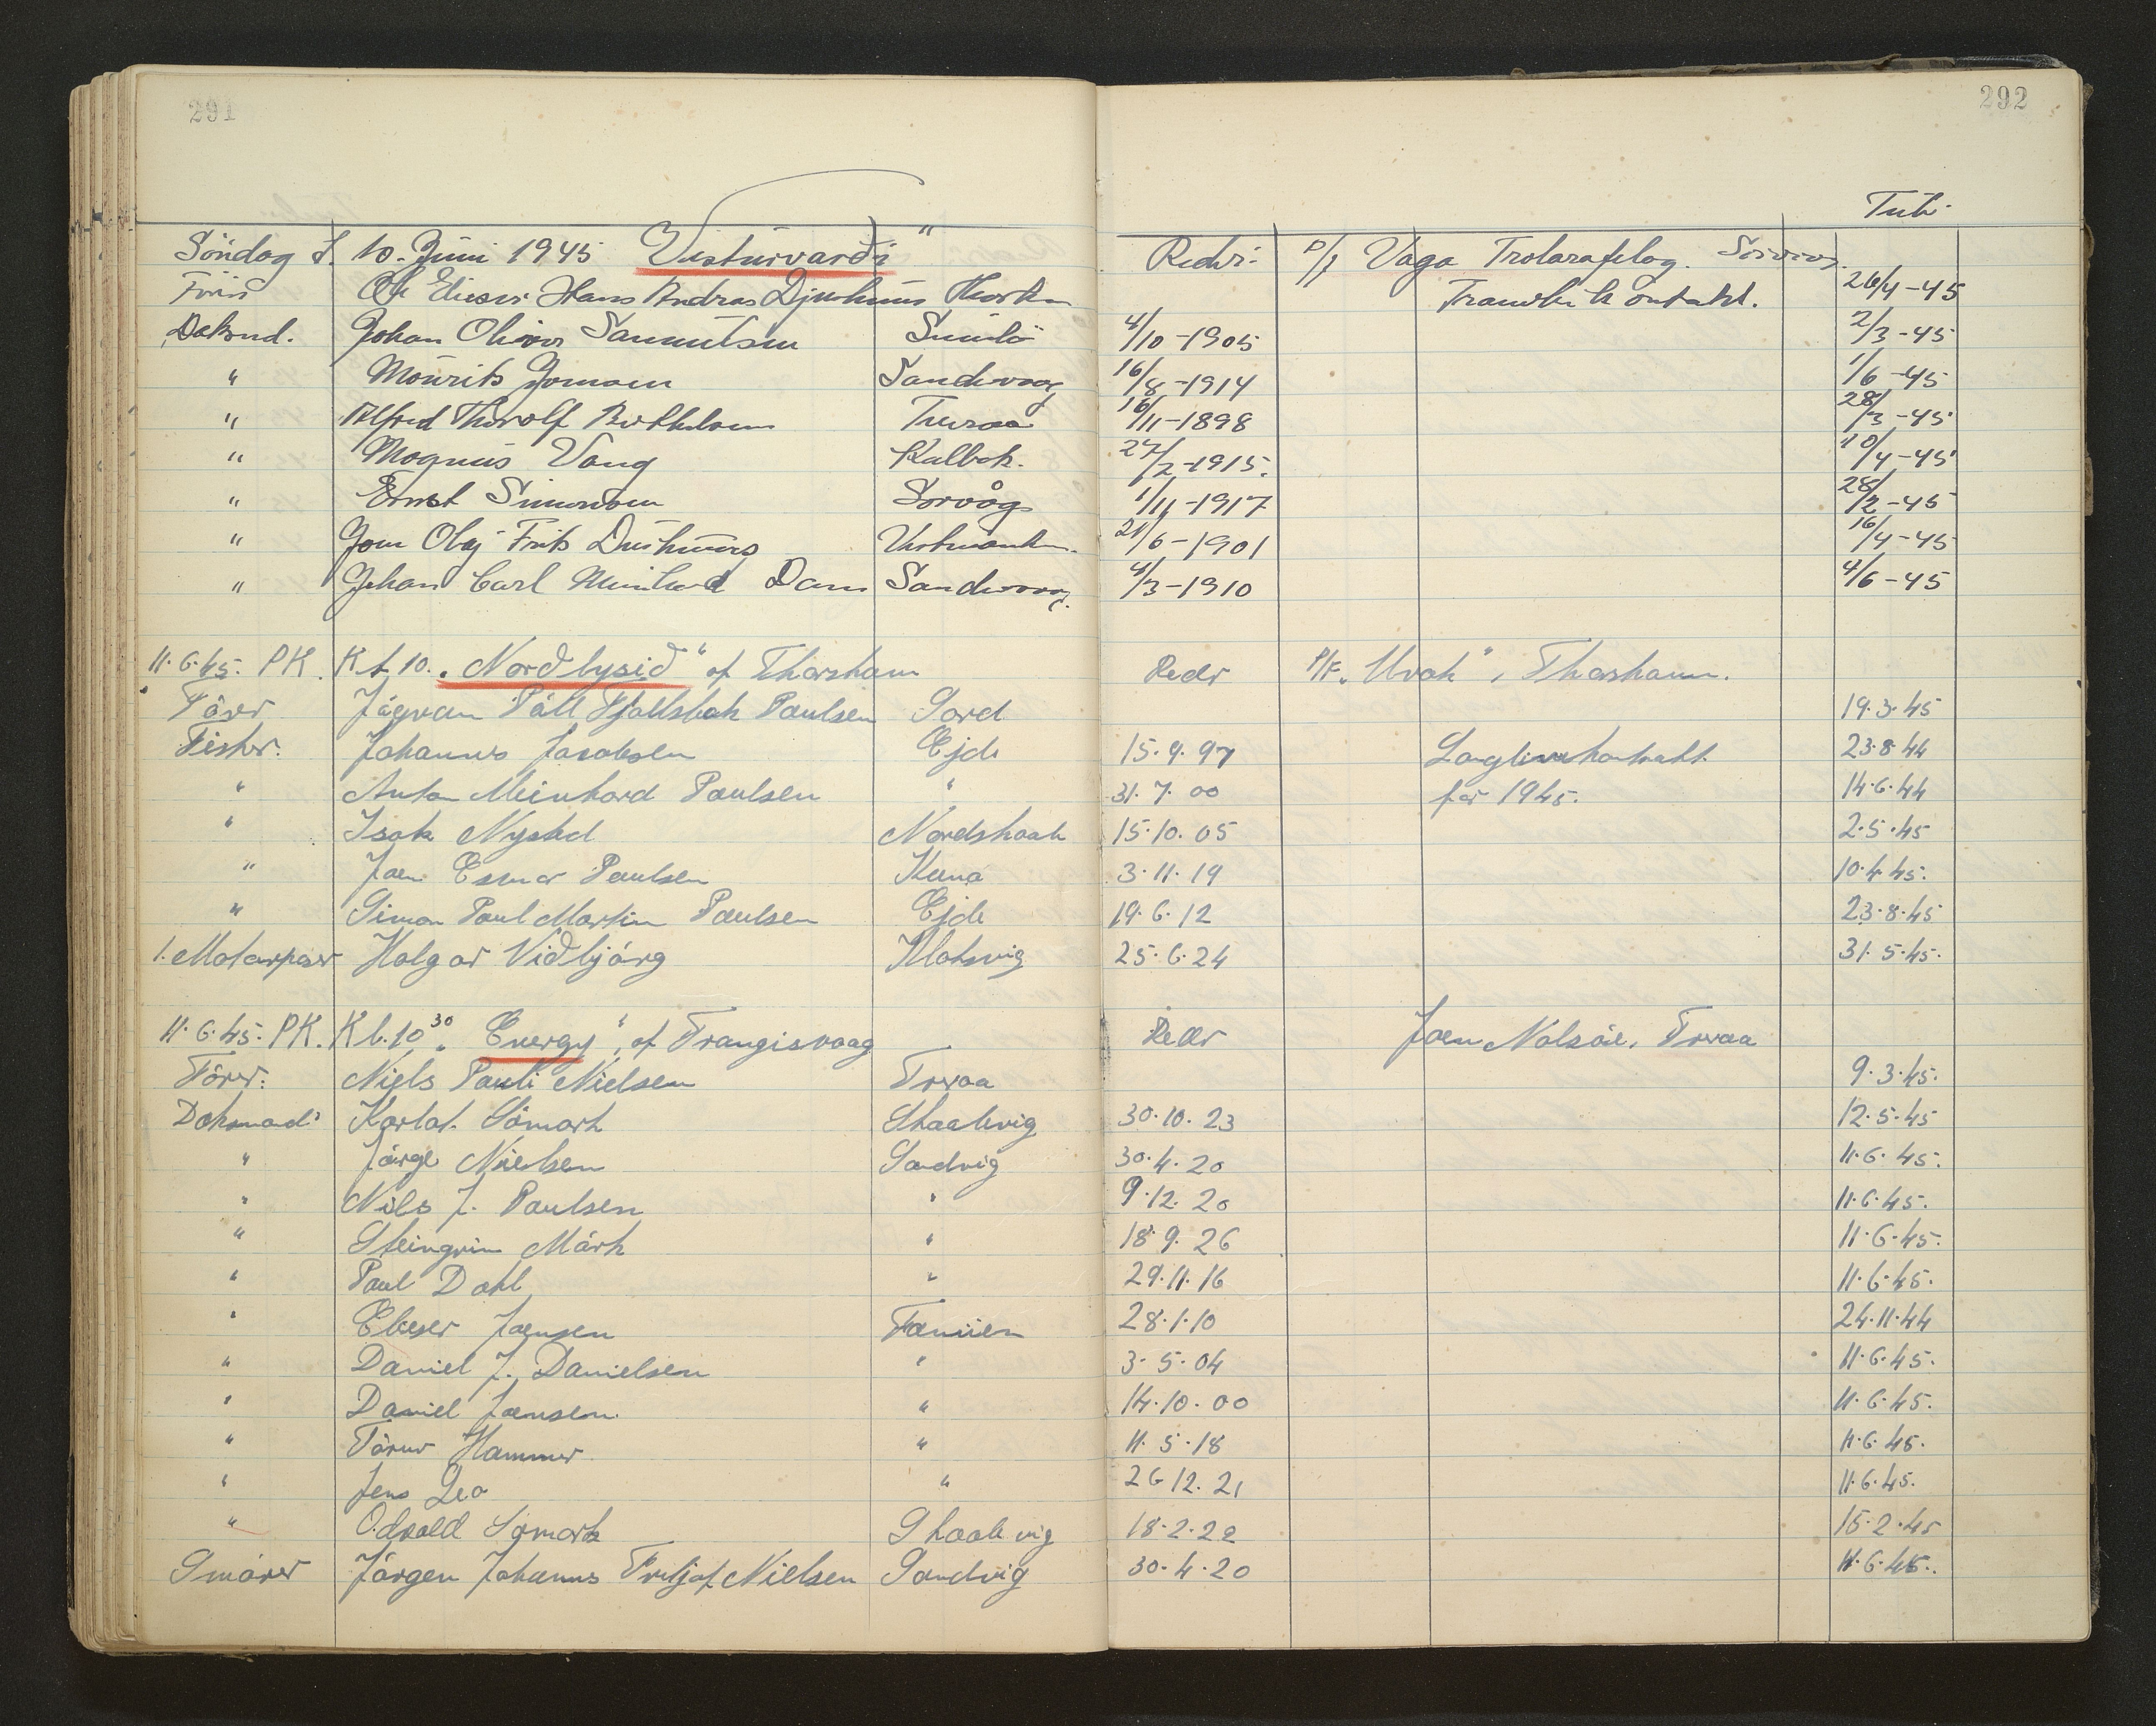 291
292
Tub.
Söndag d. 10. Juni 1945 Vesturvardi " Reder: P/f Vaga Trolarafelag. Sörvaag.
Förer Ole Elieser Hans Andreas Djurhuus Thorshn Trawlkontrakt. 26/4-45
Daksmd. Johan Oliver Samuelsen 4/10-1905 2/3-45
" Mourits Joensen Sandevaag 16/8-1914 1/6-45
" Alfred Thorolf Berthelsen Tveraa 16/11-1898 28/3-45
" Magnus Vang Kalbak. 1915. 10/4-45
" Ernst Simonsen Sorvåg 1/11-1917 28/2-45
" Joen Olaj Frits Durhuus Vestmanhn. 21/6-1901 16/4-45
" Johan Carl Meinhard Dam Sandevaag. 4/3-1910 4/6-45
11.6.45. PK. Kl. 10. "Nordlysid" af Thorshavn Reder P/F. "Hvak", Thorshavn.
Förer Jógvan Páll Fjallsbak Paulsen Gord 19.3.45
Fisker. Johannes Jacobsen Ejde 15.9.97 Langlinekontrakt 23.8.44
" Anton Meinhard Paulsen " 31.7.00 for 1945. 14.6.44
" Isak Nysted Nordskaale 15.10.05 2.5.45
" Joen Esmar Paulsen 3.11.19 10.4.45.
" Simon Paul Martin Paulsen Ejde 19.6.12 23.8.45
1. Motorpasser Holgar Vidbjárg Klaksvig 25.6.24 31.5.45.
11.6.45. PK. Kl. 10 30 "Energy", af Trangisvaag Reder Joen Nolsöe, Tveraa
Förer: Niels Pauli Nielsen Tveraa 9.3.45.
Daksmad: Karlot Sömark Skaalevig 30.10.23 12.5.45
" Jörge Nielsen Sandvig 30.4.20 11.6.45.
" Nils J. Paulsen " 9.12.20 11.6.45.
" Steingrim Mörk " 18.9.26 11.6.45.
" Paul Dahl " 29.11.16 11.6.45.
" Elieser Joensen Famien 28.1.10 24.11.44
" Daniel J. Danielsen " 3.5.04 11.6.45.
" Daniel Joensen " 14.10.00 11.6.45.
" Tórur Hammer " 11.5.18 11.6.45.
" Jens Leo " 26.12.21 11.6.45.
" Odvald Sömark Skaalevig 18.2.22 15.2.45
Smörer Jörgen Johannes Fritjof Nielsen Sandvig 30.4.20 11.6.45.